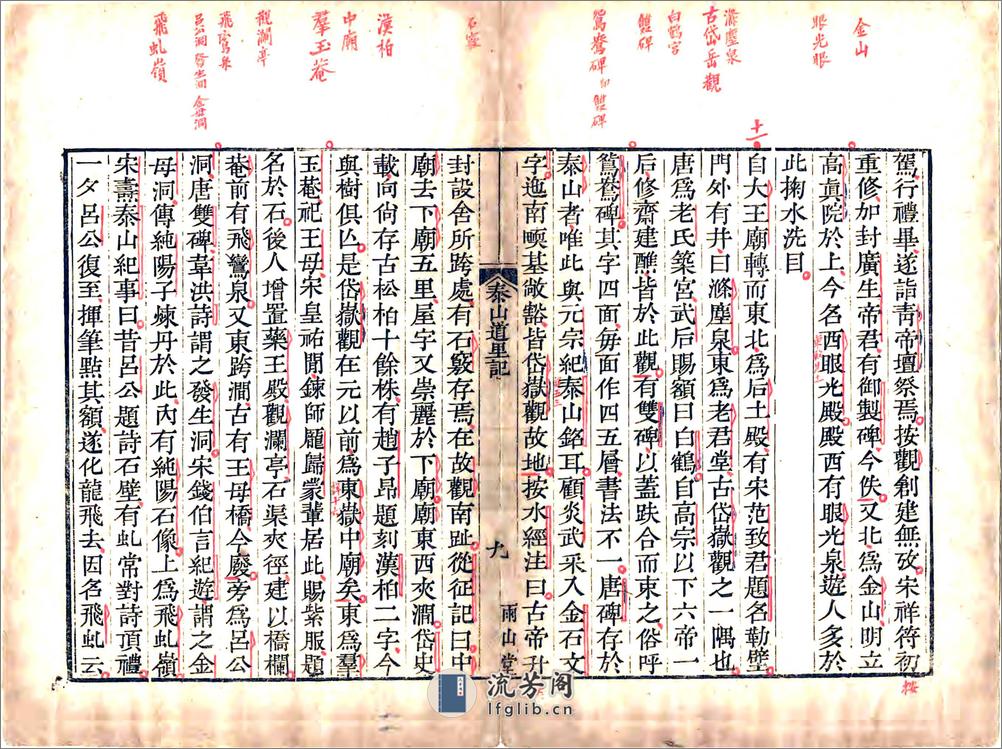 金山
眼光眼
滌塵泉
古岱岳觀
白鶴宮
雙碑
鴛鴦碑即雙碑
石竅
漢柏
中廟
羣玉菴
觀瀾亭
飛鸞泉
呂公洞 發生洞 金母洞
飛虬嶺
十一
駕行禮畢遂詣靑帝壇祭焉按觀創建無攷宋祥符初
重修加封廣生帝君有御製碑今佚又北爲金山明立
高眞院於上今名西眼光殿殿西有眼光泉遊人多於
此掬水洗目
自大王廟轉而東北爲后土殿有宋范致君題名勒壁
門外有井曰滌塵泉東爲老君堂古岱嶽觀之一隅也
唐爲老氏築宮武后賜額曰白鶴自高宗以下六帝一
后修齋建醮皆於此觀有雙碑以蓋趺合而束之俗呼
鴛鴦碑其字四面毎面作四五層書法不一唐碑存於
泰山者唯此與元宗紀泰山銘耳顧炎武采入金石文
字迤南㽗基敞豁皆岱嶽觀故地按水經注曰古帝升
泰山道里記
九
雨山堂
封設舍所跨處有石竅存焉在故觀南趾從征記曰中
廟去下廟五里屋宇又崇麗於下廟廟東西夾澗岱史
載向尙存古松柏十餘株有趙子昂題刻漢柏二字今
與樹俱亾是岱嶽觀在元以前爲東嶽中廟矣東爲羣
玉菴祀王母宋皇祐閒鍊師龎歸蒙輩居此賜紫服題
名於石後人增置藥王殿觀瀾亭石渠夾徑建以橋欄
菴前有飛鸞泉又東跨澗古有王母橋今廢旁爲呂公
洞唐雙碑韋洪詩謂之發生洞宋錢伯言紀遊謂之金
母洞傳純陽子煉丹於此內有純陽石像上爲飛虬嶺
宋壽泰山紀事曰昔呂公題詩石壁有虬常對詩頂禮
一夕呂公復至揮筆點其額遂化龍飛去因名飛虬云
按
流芳阁
lfglib.cn